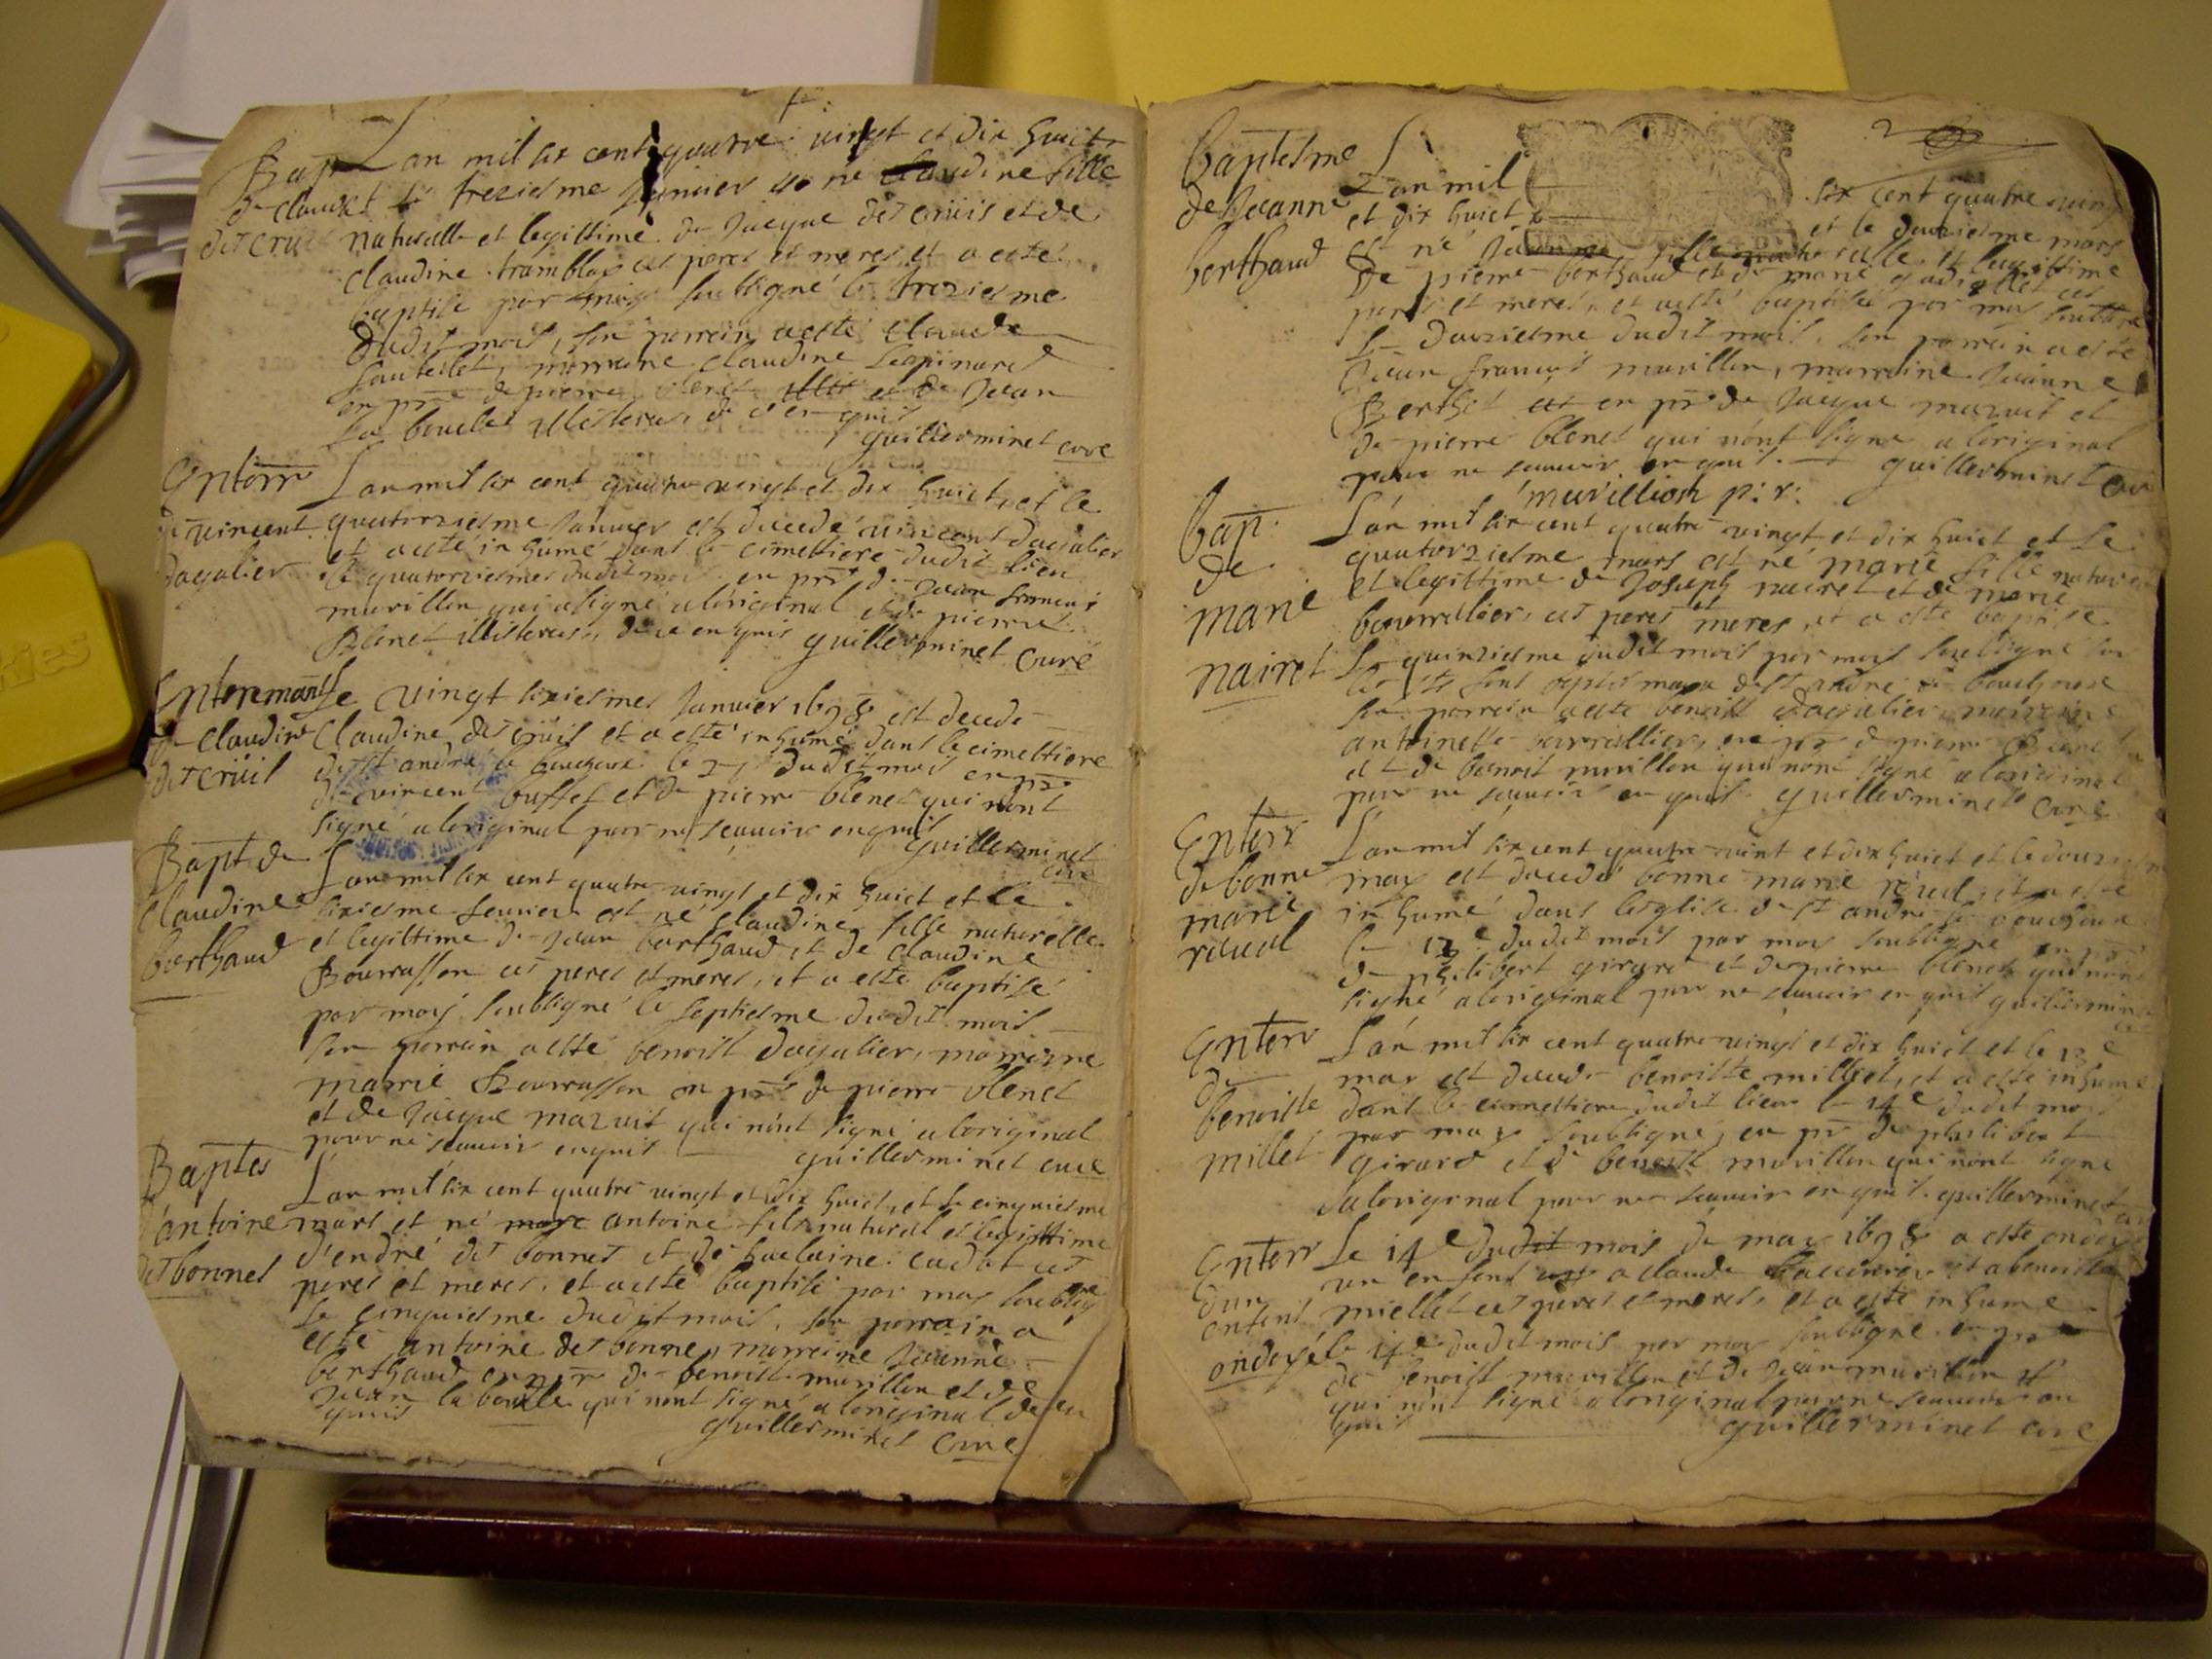 Bapt
de claudine
des cruis
L'an mil six cent quatre vingt et dix huict
le treziesme janvier est né claudine fille
naturelle et legittime de Jacque des crüis et de
claudine tramblay ces peres et meres et a esté
baptisé par moy soubsigné le treziesme
dudit mois, son parrein a esté claude
marraine claudine
en pnce de pierre blenet et de Jean
la boucle illisteres, de ce en quis
guillerminet curé
Enterr
de vincent
dagalier
L'an mil six cent quatre vingt et dix huict, et le
quatorziesme Janvier est decedé vincent dagalier
et a esté inhumé dans le cimettiere dudit lieu
le quatorziesmes dudit mois en pnce de Jean francois
murillon qui a signé a l'original et de pierre
Blenet illisteres, de ce enquis guillerminet curé
Enteremant
de claudine
des crüil
Le vingt sixiesmes Janvier 1698 est decede
Claudine des crüil et a esté inhumé dans le cimettiere
de st andré le bouchoux le 27 dudit mois en pnce
de vincent buffet et de pierre blenet qui nont
signé a loriginal pour ne scauoir enquis
guillerminet
curé
Bapt de
claudine
berthaud
L'an mil six cent quatre vingt et dix huict et le
sixiesme feurier est né claudine fille naturelle
et legittime de Jean berthaud et de claudine
Bourrasson ces peres et meres, et a esté baptisé
par moy soubsigné le septiesme dudit mois
son parrein a esté benoist dagalier, marreine
marrie Bourrasson en pnce de pierre blenet
et de Jacque mazuit qui n'ont signé a loriginal
pour ne scauoir enquis guillerminet curé
Baptes
d'antoine
des bonnet
L'an mil six cent quatre vingt et dix huict, et le cinquiesme
mars et né antoine fils naturel et legittime
d'endré des bonnet et de huelaine cadot ces
peres et meres, et a esté baptisé par moy soubsigné
le cinquiesme dudit mois, son parrain a
esté antoine des bonne, marreine Jeanne
berthaud en pnce de benoist murillon et de
Jean la boucle qui nont signé a loriginal de ce en
quis
guillerminet curé
2
baptesme
de Jeanne
berthaud
L'an mil six cent quatre vingt
et dix huict et le douziesme mars
est né Jeanne fille naturelle et legittime
de pierre berthaud et de marie
peres et meres, et a esté baptisée par moy soubsigné
le douziesme dudit mois, son parrein a esté
Jean francois murillon, marraine Jeanne
Berthet en pnce de Jacque mazuit et
de pierre blenet qui n'ont signe a loriginal
pour ne scauoir enquis. guillerminet curé
murillion p: r:
bap.
de
marie
nairet
L'an mil six cent quatre vingt et dix huict et le
quatorziesme mars est né marie fille naturelle
et legittime de Joseph nairet et de marie
bourrallier, ces peres meres, et a esté baptisé
le quinziesme dudit mois par moy soubsigné
de st andré le bouchoux
son parrein a esté benoist dagalier, marreine
antoinette bourrallier, en pnce de pierre Blenet
et de benoit murillon qui nont signé a loriginal
pour ne scauoir en quis. guillerminet curé
Enterr
de bonne
marie
reuel
L'an mil six cent quatre vint et dix huict et le douziesme
may est decedé bonne marie reuel, et a esté
inhumé dans l'eglise de st andré le bouchoux
le 13e dudit mois par moy soubsigne en pnce
de philibert girard et de pierre blenet qui nont
signé a loriginal pour ne scauoir en quis guillerminet
Enterr
de
benoiste
millet
L'an mil six cent quatre vingt et dix huict et le 13e
may est decede benoiste milliet, et a esté inhumé
dans le cimettiere dudit lieu le 14e dudit mois
par moy soubsigné, en pnce de philibert
girard et de benoist murillon qui n'ont signe
a loriginal pour ne scauoir en quis. guillerminet
Enterr
d'un
enfent
ondoyé
Le 14e dudit mois de may 1698 a esté ondoyé
un enfent a claude et a benoiste
miellet ces peres et meres, et a esté inhume
le 14e dudit mois par moy soubsigne en pnce
de benoist murillon et de Jean murillon
qui n'ont signé a loriginal pour ne scauoir en
quis
guillerminet curé